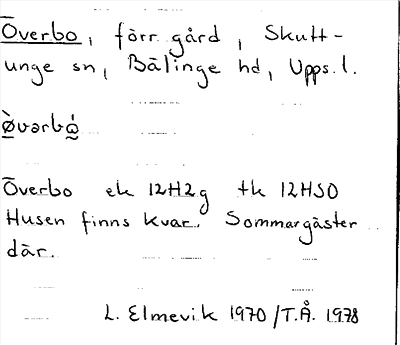 Överbo, förr gård, Skutt-
unge sn, Bälinge hd, Upps. l.
Överbo ek 12H2g tk 12HSO
Husen finns kvar. Sommargäster
där.
L. Elmevik 1970/T.Å. 1978